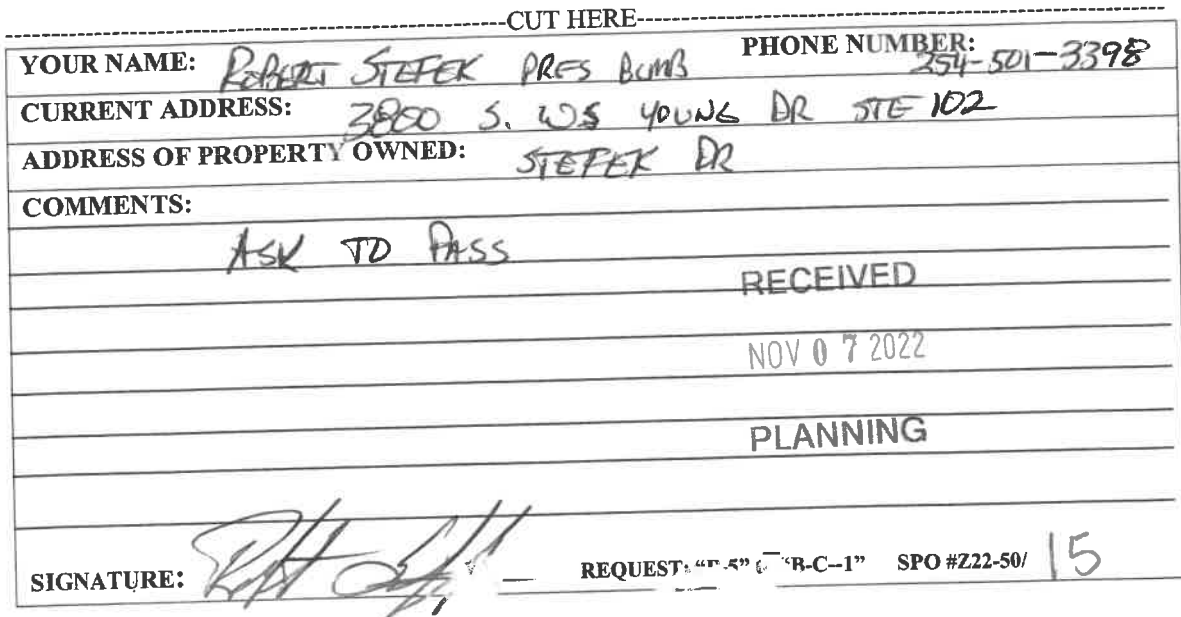 CUT HERE
YOUR NAME: ROBERT STEFEK PRES BCMB PHONE NUMBER: 254-501-3398
CURRENT ADDRESS: 3800 S. WS YOUNG DR STE 102
ADDRESS OF PROPERTY OWNED: STEFEK DR
COMMENTS:
ASK TO PASS
RECEIVED
NOV 07 2022
PLANNING
SIGNATURE: REQUEST: "B-C--1" SPO #Z22-50/ 15